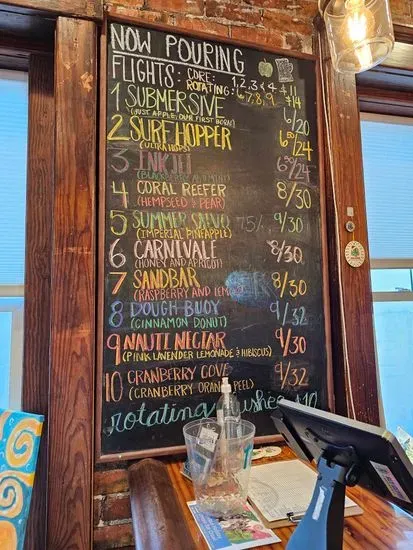 NOW POURING
FLIGHTS: CORE: 1, 2, 3 & 4 $11
ROTATING: 6, 7, 8, 9 $14
1 SUBMERSIVE 6/20
(JUST APPLE, OUR FIRST BORN!)
2 SURF HOPPER 6.50/24
(ULTRA HOPS)
3 INKJET 6.50/24
(BLACKBERRY AND MINT)
4 CORAL REEFER 8/30
(HEMPSEED & PEAR)
5 SUMMER SALVO 75% 9/30
(IMPERIAL PINEAPPLE)
6 CARNIVALE 8/30
(HONEY AND APRICOT)
7 SANDBAR 8/30
(RASPBERRY AND LEMON)
8 DOUGH BUOY 9/32
(CINNAMON DONUT)
9 NAUTI NECTAR 9/30
(PINK LAVENDER LEMONADE & HIBISCUS)
10 CRANBERRY COVE 9/32
(CRANBERRY ORANGE PEEL)
rotating slushes $10